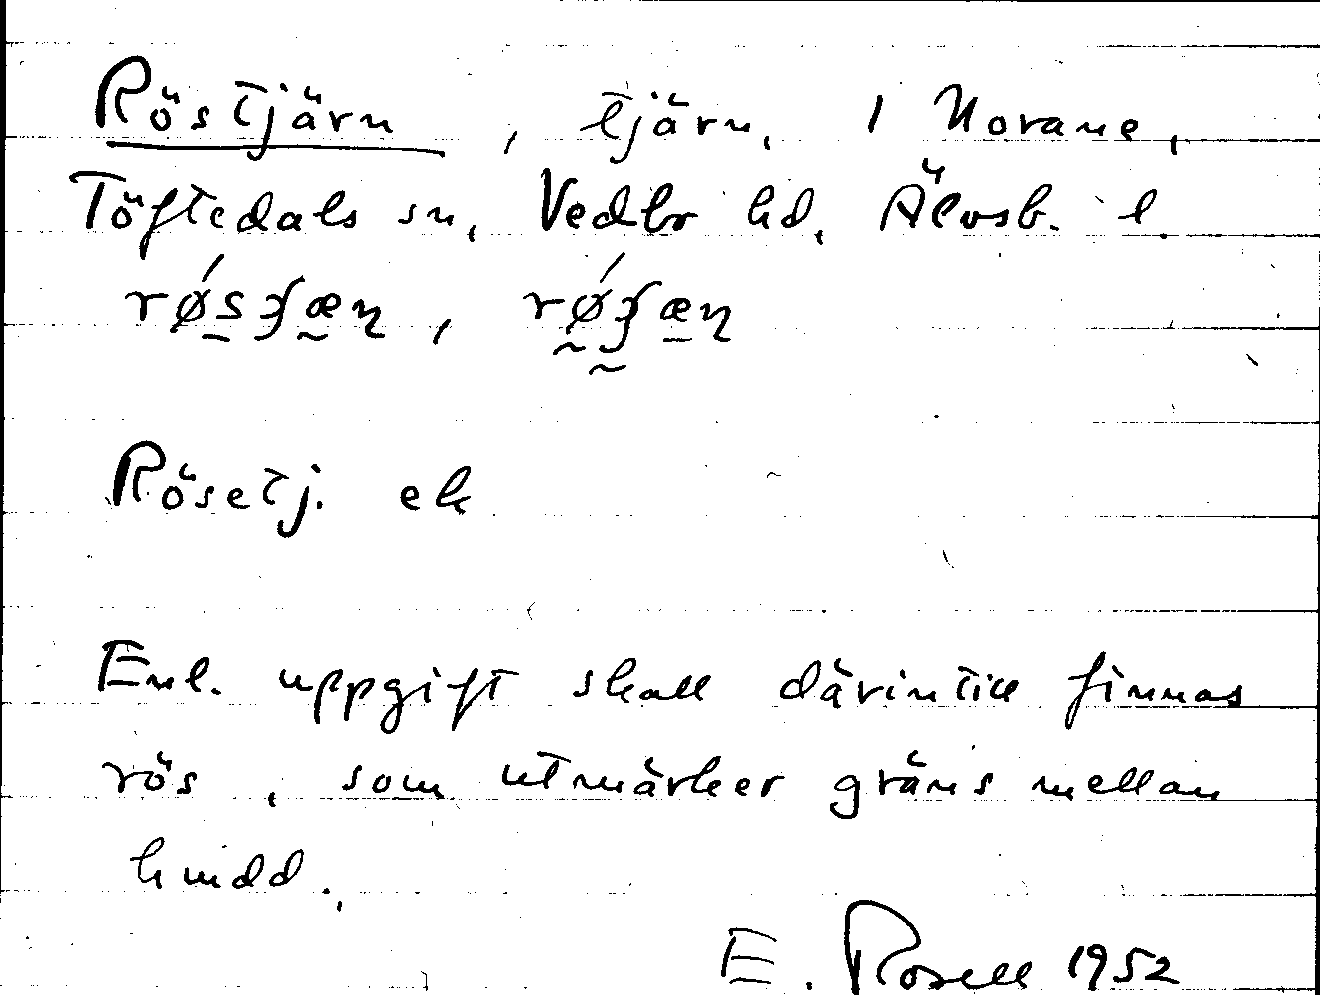 Röstjärn, tjärn, 1 Norane,
Töftedals sn, Vedbo hd, Älvsb. l.
Rösetj. ek
Enl. uppgift skall därintill finnas
rös, som utmärker gräns mellan
hmdd.
E. Rosell 1952